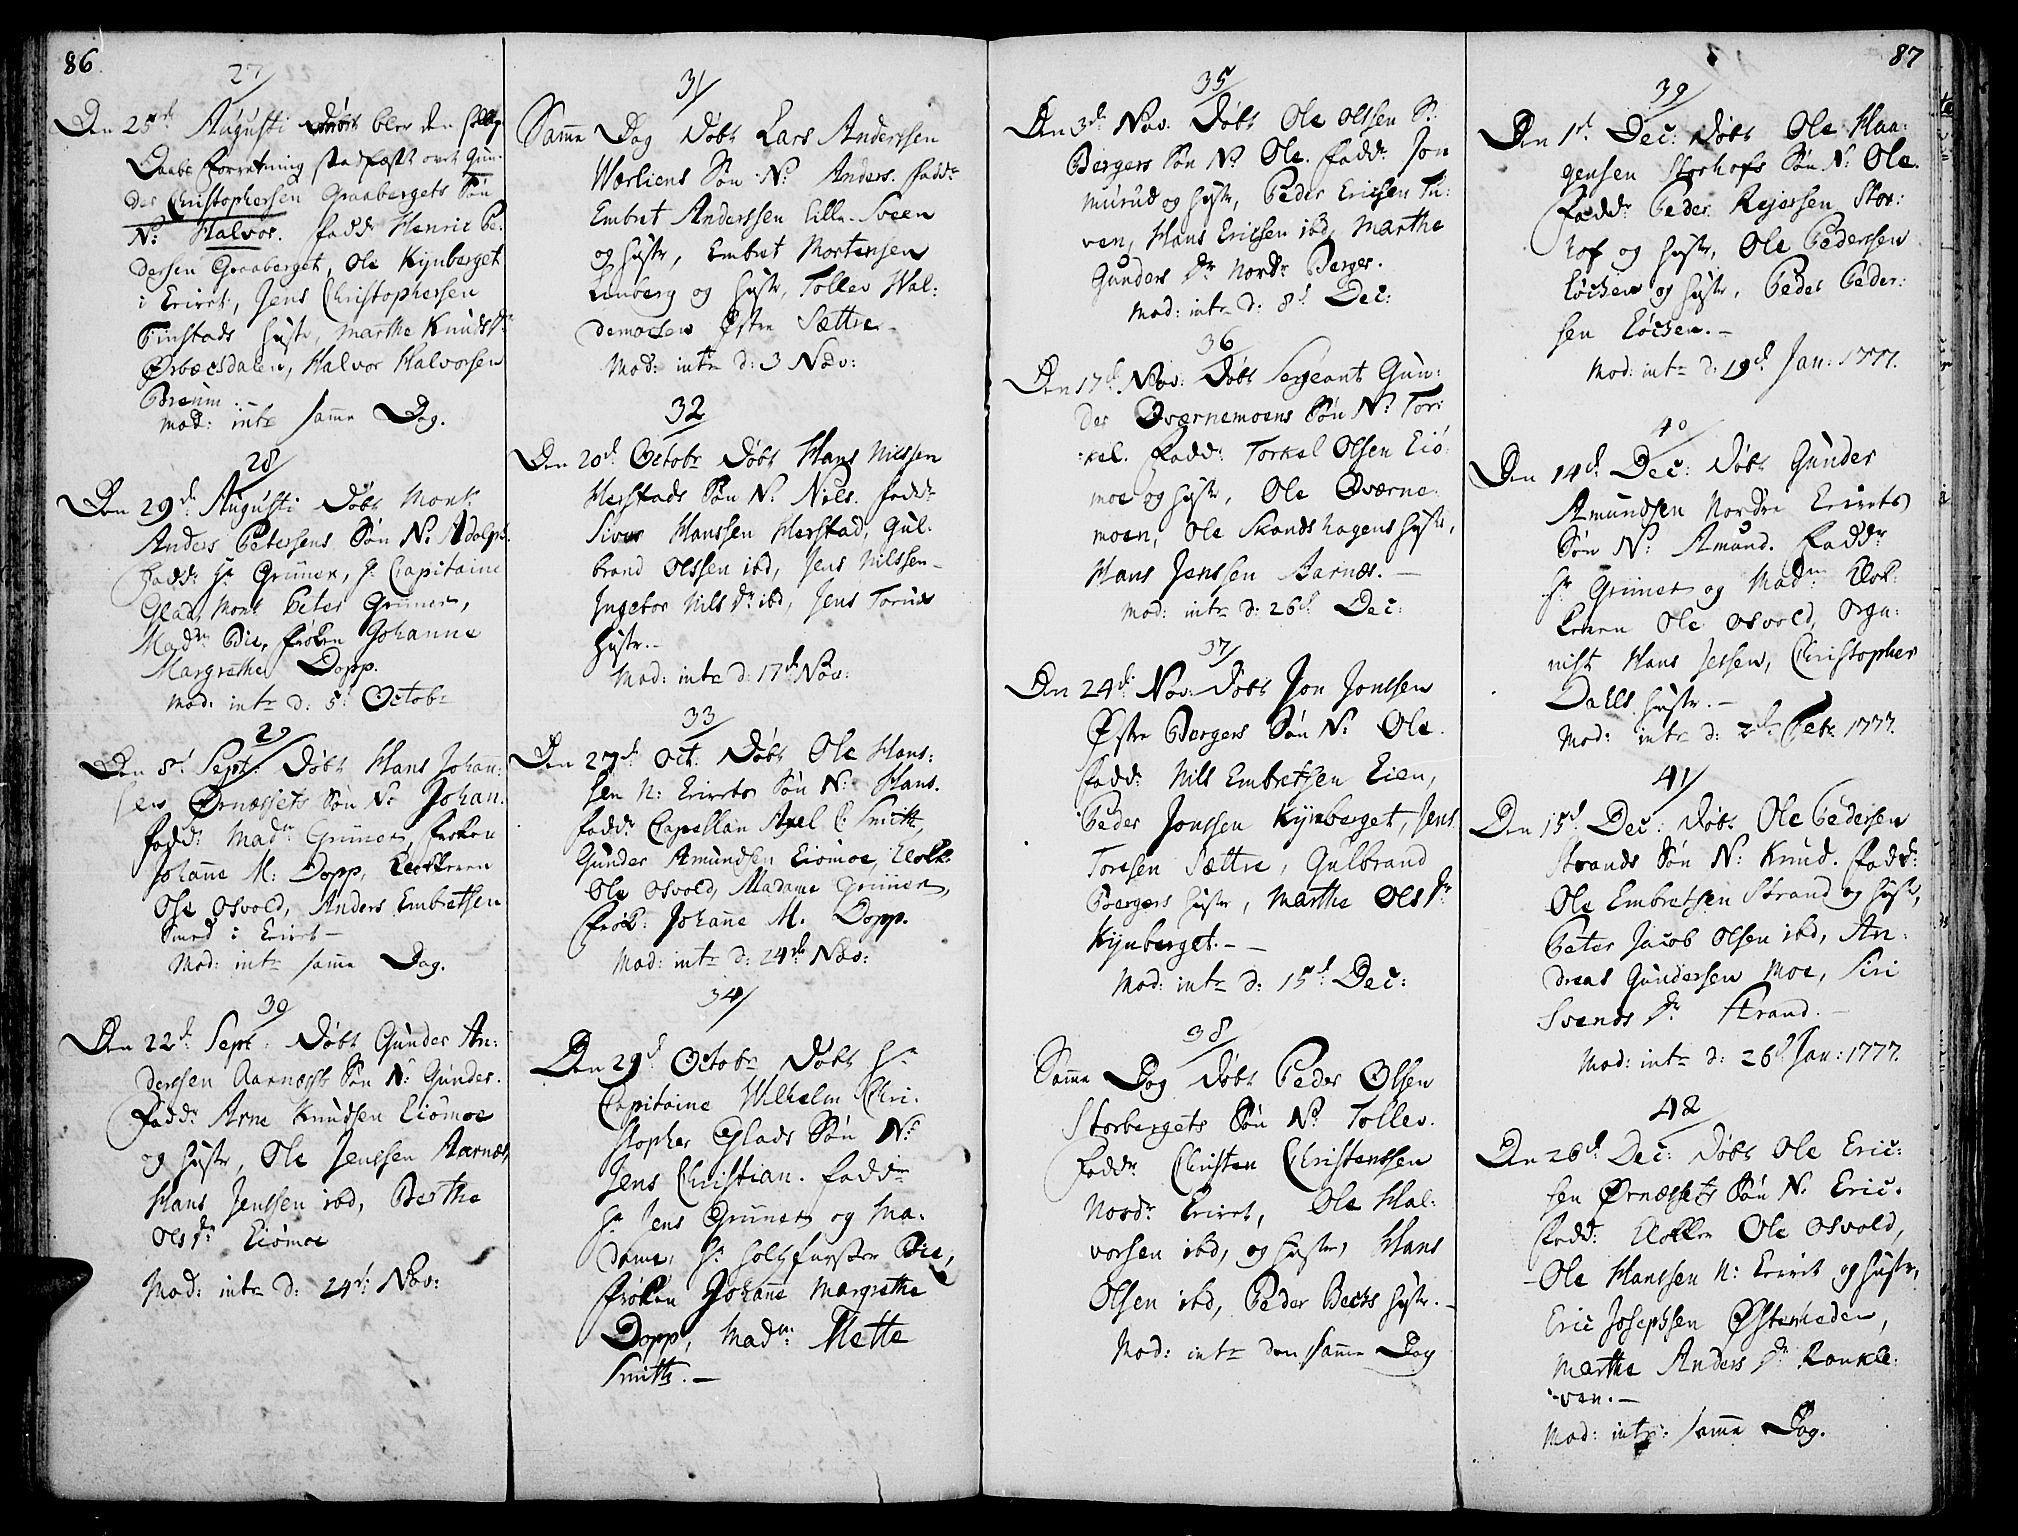 86
27/
Den 25de Augusti blev den
Daabs Forretning stadfæstet over Gun-
der Christophersen Graabergets Søn
N: Halvor. Fadd: Henric Pe-
dersen Graaberget, Ole Kynberget
i Erivet, Jens Christophersen
Finstads Hustr, Marthe Knudsdr
Ørbæcsdalen, Halvor Halvorsen
Breum.
Mad: intr samme Dag.
28/
Den 29de Augusti Døbt Mons
Anders Petersens Søn N: Adolph.
Fadd: Hr Grüner, Hr Capitaine
Glad, Mons Peter Grüner,
Madm Bie, Frøken Johanne
Margrethe Dopp.
Mad: intr d: 5t Octobr
29/
Den 8d Sept: Døbt Hans Johan-
sen Ørnæssets Søn N: Johan.
Fadd: Madm Grüner, Frøken
Johanne M: Dopp, Klokkeren
Ole Osvold, Anders Embretsen
Smed i Erivet —
Mad: intr samme Dag.
30/
Den 22d Sept: Døbt Gunder An-
derssen Aarnæss Søn N: Gunder.
Fadd: Arne Knudsen Eiømoe
og Hustr, Ole Jenssen Aarnæs,
Hans Jenssen ibd, Berthe
Olsdr Eiømoe
Mad: intr d: 24d: Nov:
31/
Samme Dag Døbt Lars Anderssen
Wærliens Søn N: Anders. Fadd:
Embret Anderssen Lille-Sveen
og Hustr, Embret Mortensen
Lunberg og Hustr, Tollev Wal-
demorsen Østre Sættre.
Mad: intr d: 3 Nov:
32
Den 20d Octobr Døbt Hans Nilssen
Herstads Søn N: Nils. Fadd:
Siver Hanssen Herstad, Gul-
brand Olssen ibd, Jens Nilssen
Ingebor Nilsdr ibd, Jens Toruds
Hustr. —
Mad: intr d: 17d Nov:
33/
Den 27d Oct: Døbt Ole Hans-
sen N: Erivets Søn N: Hans.
Fadd: Capellan Axel C: Smith,
Gunder Amundsen Eiømoe, Klok:
Ole Osvold, Madame Grüner,
Frøk: Johanne M. Dopp.
Mad: intr d: 24de Nov:
34/
Den 29d Octobr Døbt Hr
Capitaine Wilhelm Chri-
stopher Glads Søn N:
Jens Christian. Fadd:
Hr Jens Grüner og Ma-
dame, Hr Holtzfurster Bie,
Frøken Johanne Margrethe
Dopp, Madm: Mette
Smith. —
35/
Den 3d Nov. Døbt Ole Olssen S:
Bergers Søn N: Ole. Fadd: Jon
Murud og Hustr, Peder Ericsen Tu-
ven, Hans Ericsen ibd, Marthe
Gundersdr Nordr Berger.
Mad: intr d: 8d Dec:
36
Den 17d Nov: Døbt Sergeant Gun-
der Qværnemoens Søn N: Tor-
kel. Fadd: Torkel Olsen Eiø-
moe og Hustr, Ole Qværne-
moen, Ole Skandshagens Hustr,
Hans Jenssen Aarnæs. —
Mad: intr d: 26d Dec:
37/
Den 24de Nov: Døbt Jon Jonssen
Østre Bergers Søn N: Ole.
Fadd: Nils Embretsen Eien,
Peder Jonssen Kynberget, Jens
Toresen Sættre, Gulbrand
Bergers Hustr, Marthe Olsdr
Kynberget. —
Mad: intr d: 15d Dec:
38/
Samme Dag Døbt Peder Olsen
Storbergets Søn N: Tollev.
Fadd: Christen Christenssen
Nordr Erivet, Ole Hal-
vorsen ibd, og Hustr, Hans
Olsen ibd, Peder Becks Hustr. —
Mad: intr den samme Dag
87
39/
Den 1d Dec: Døbt Ole Haa-
gensen Storhofs Søn N: Ole.
Fadd: Peder Rejersen Stor-
hof og Hustr, Ole Pederssen
Løchen og Hustr, Peder Peder-
sen Løchen. —
Mad: intr d: 19d Jan: 1777.
40/
Den 14d Dec: Døbt Gunder
Amundsen Nordre Erivets
Søn N: Amund. Fadd:
Hr Grüner og Madm Klok-
keren Ole Osvold, Orga-
nist Hans Jessen, Christopher
Dahls Hustr. —
Mad: intr d: 2d Febr 1777.
41/
Den 15d Dec: Døbt Ole Pedersen
Strands Søn N: Knud. Fadd:
Ole Embretsen Strand og Hustr,
Peter Jacob Olsen ibd, An-
dreas Gundersen Moe, Siri
Svendsdr Strand. —
Mad: intr d: 26d Jan: 1777.
42
Den 26d Dec: Døbt Ole Eric-
sen Ørnæssets Søn N: Eric.
Fadd: Klokker Ole Osvold,
Ole Hanssen N: Erivet og Hustr,
Eric Josephsen Østerheden,
Marthe Andersdr Rankle-
ven. —
Mad: intr: samme Dag.